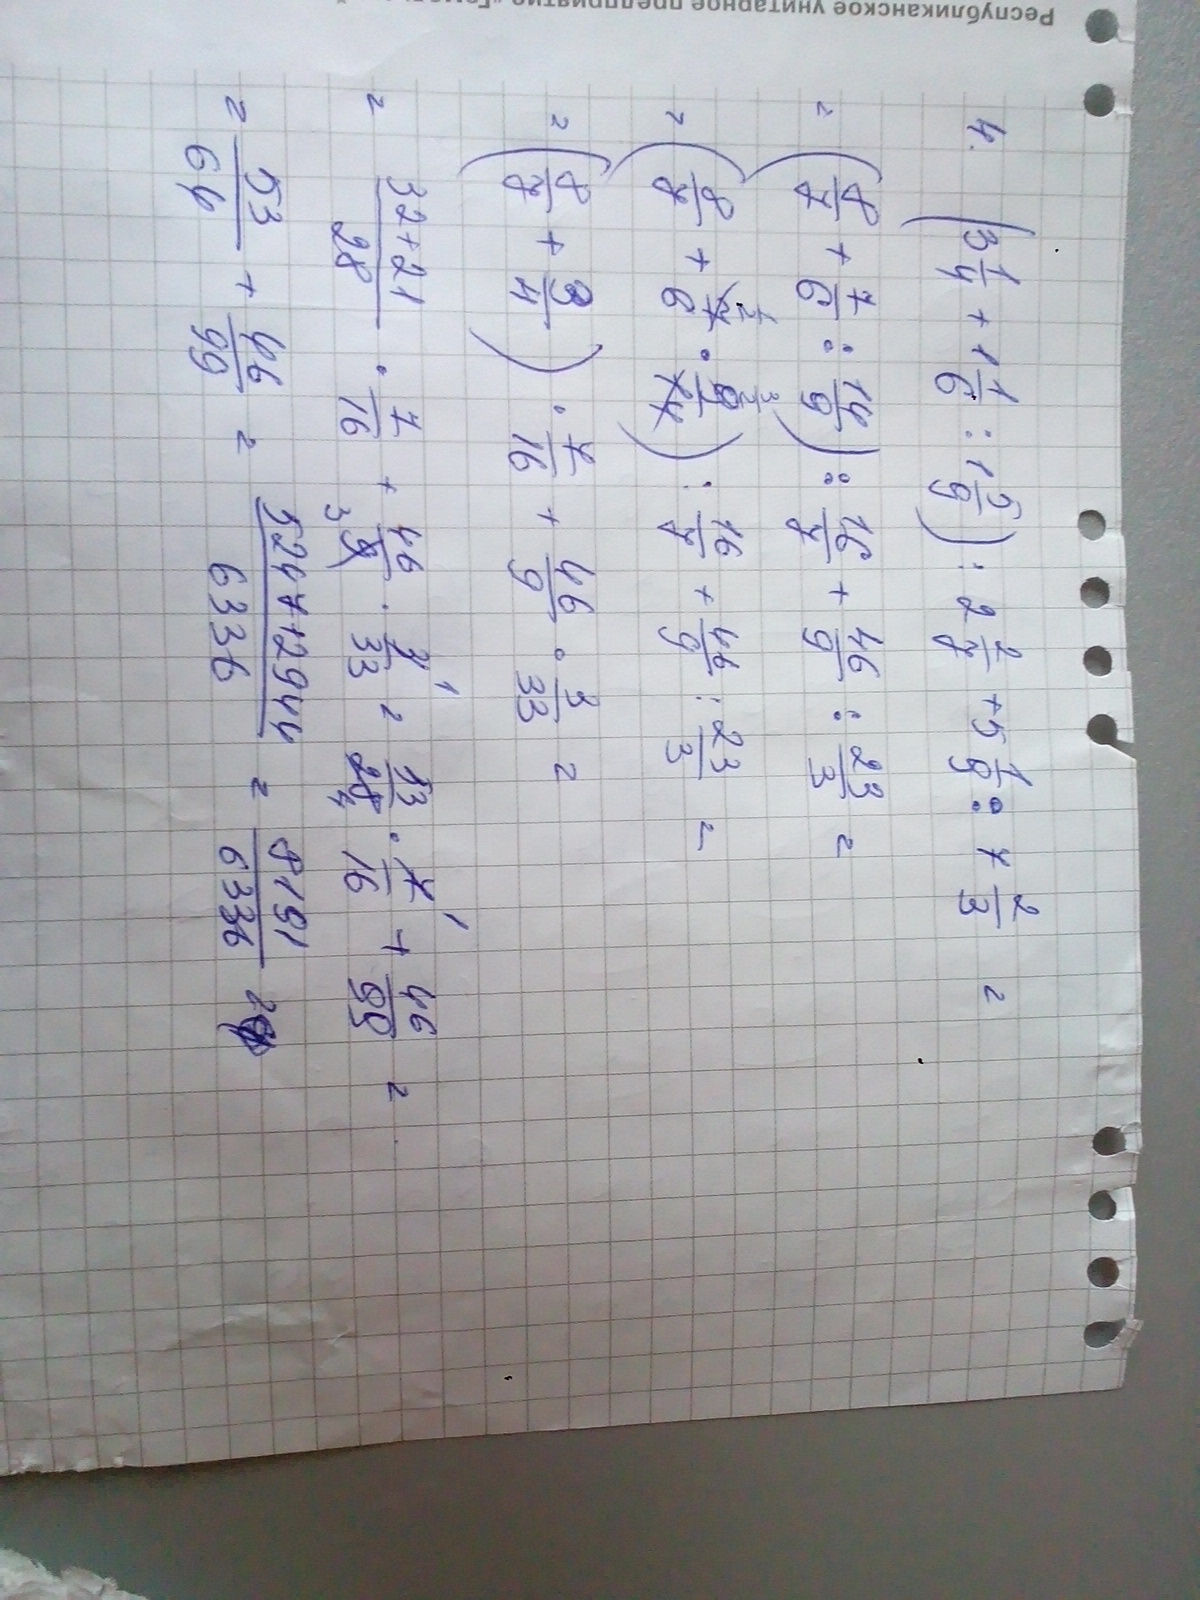 Республиканское унитарное предприятие "Гом
4. (3 1/4 + 1 1/6 : 1 5/9) : 2 2/7 + 5 1/9 : 7 2/3 =
= (8/7 + 7/6 : 14/9) : 16/7 + 46/9 : 23/3 =
= (8/7 + 7/6 · 9/14) : 16/7 + 46/9 : 23/3 =
= (8/7 + 3/4) · 7/16 + 46/9 · 3/33 =
= 32+21/28 · 7/16 + 46/9 · 3/33 = 53/28 · 7/16 + 46/99 =
= 53/64 + 46/99 = 5247+2944/6336 = 8191/6336 =